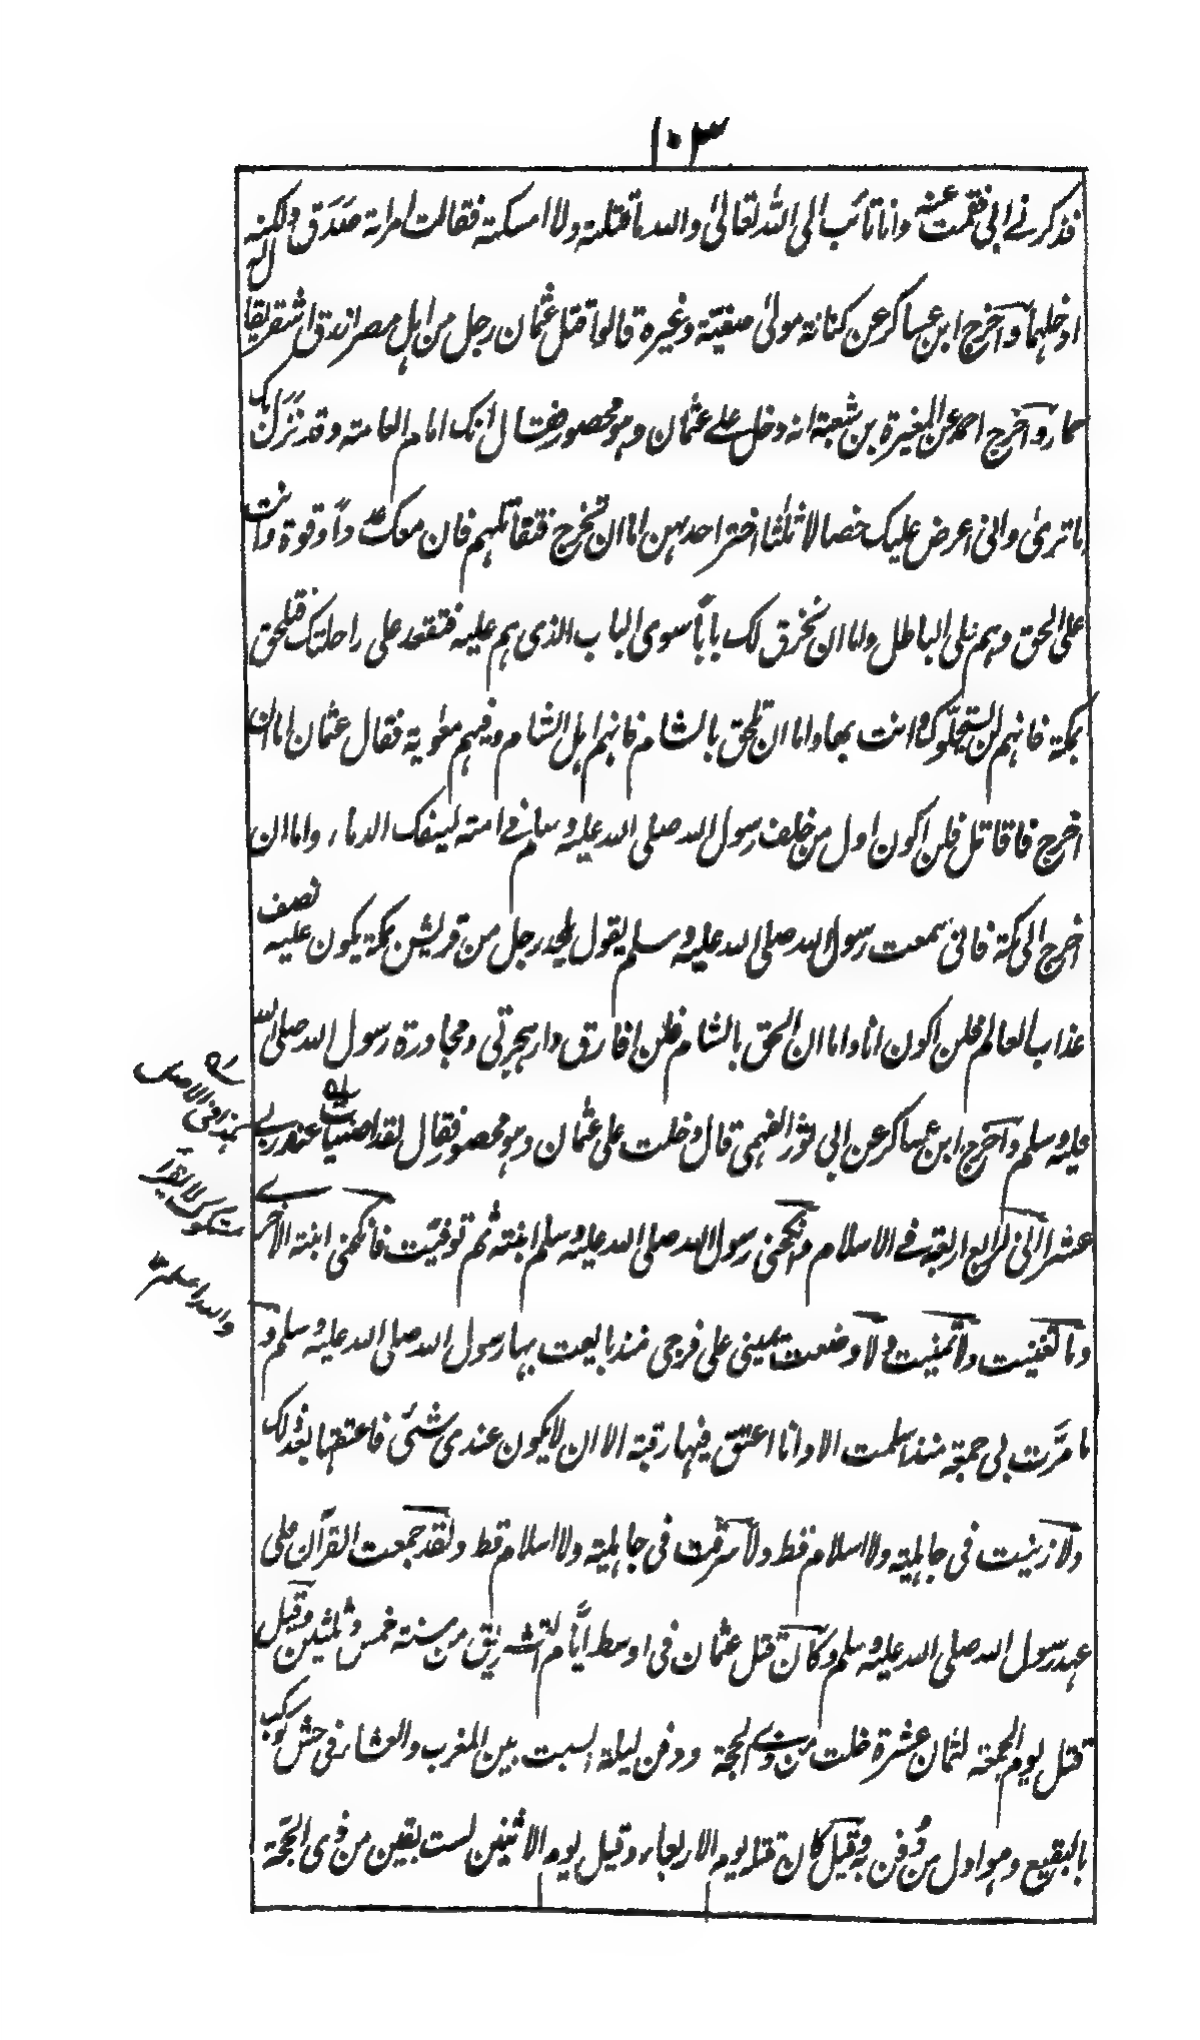 ١٠٣
فذکرنے ابی فقمت عنه وانا تائب الی الله تعالیٰ والله ما قتلته ولا امسکته فقالت امراته صَدَق ولکنه
ادخلهما واخرج ابن عساکر عن کنانة مولیٰ صفیّة وغیره قالوا قتل عثمان رجل من اهل مصر ازرق اشقر یقال له
حمار واخرج احمد عن المغیرة بن شعبة انه دخل علے عثمان وهو محصور فقال انک امام العامة وقد نَزَل بک
ما ترىٰ وانی اعرض علیک خصالا ثلٰثا اختر احدٰهن اما ان تخرج فتقاتلهم فان معک عددًا وقوة وانت
علی الحق وهم علی الباطل واما ان نخرق لک بابًا سوی الباب الذی هم علیه فتقعد علی راحلتک فتلحق
بمکة فانهم لن یستحلّوک وانت بها واما ان تلحق بالشام فانهم اهل الشام وفیهم معٰویة فقال عثمان اما ان
اخرج فاقاتل فلن اکون اول من خلف رسول الله صلی الله علیه وسلم فے امته لیسفک الدماء واما ان
اخرج الی مکة فانی سمعت رسول الله صلی الله علیه وسلم یقول یلحد رجل من قریش بمکة یکون علیه نصف
عذاب العالم فلن اکون انا واما ان الحق بالشام فلن افارق دار هجرتی ومجاورة رسول الله صلی الله
علیه وسلم واخرج ابن عساکر عن ابی ثور الفهمی قال دخلت علی عثمان وهو محصور فقال لقد اختبات عند ربے
عشرا انی لرابع اربعة فے الاسلام وانکحنی رسول الله صلی الله علیه وسلم ابنته ثم توفیّت فانکحنی ابنته الاخرے
وما تغنیت ولا تمنیت ولا وضعت یمینی علی فرجی منذ بایعت بها رسول الله صلی الله علیه وسلم و
ما مرَّت بی جمعة منذ اسلمت الا وانا اعتق فیها رقبة الا ان لا یکون عندی شئی فاعتقها بعد ذلک
ولا زنیت فی جاهلیة ولا اسلام قط ولا سرقت فی جاهلیة ولا اسلام قط ولقد جمعت القرآن علی
عهد رسول الله صلی الله علیه وسلم وکان قتل عثمان فی اوسط ایّام التشریق من سنة خمس وثلٰثین وقیل
قتل یوم الجمعة لثمان عشرة خلت من ذے الحجة ودفن لیلة السبت بین المغرب والعشاء فی حش کوکب
بالبقیع وهو اول من دُفن به وقیل کان قتله یوم الاربعاء وقیل یوم الاثنین لست بقین من ذی الحجّة
هذا فی الاصل
مشکوک لا یقرأ
والله اعلم ١٢